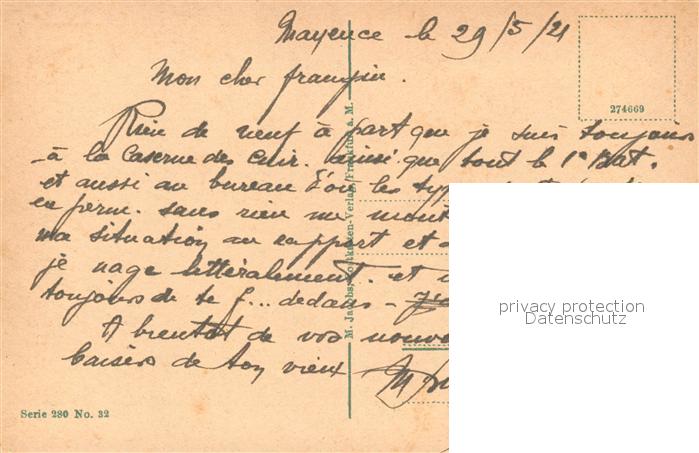 Mayence le 29/5/21
Mon cher françpin.
274669
Rien de neuf à part que je suis toujours
à la Caserne des Cuir. ainsi que tout le 1er Bat.
et aussi au bureau d'où les
en perm. sans rien me
ma situation au rapport et
je nage littéralement. et
toujours de te f... dedans -
A bientot de vos
baisers de ton vieux
M. Jacobs, Postkarten-Verlag, Frankfurt a. M.
Serie 280 No. 32
privacy protection
Datenschutz